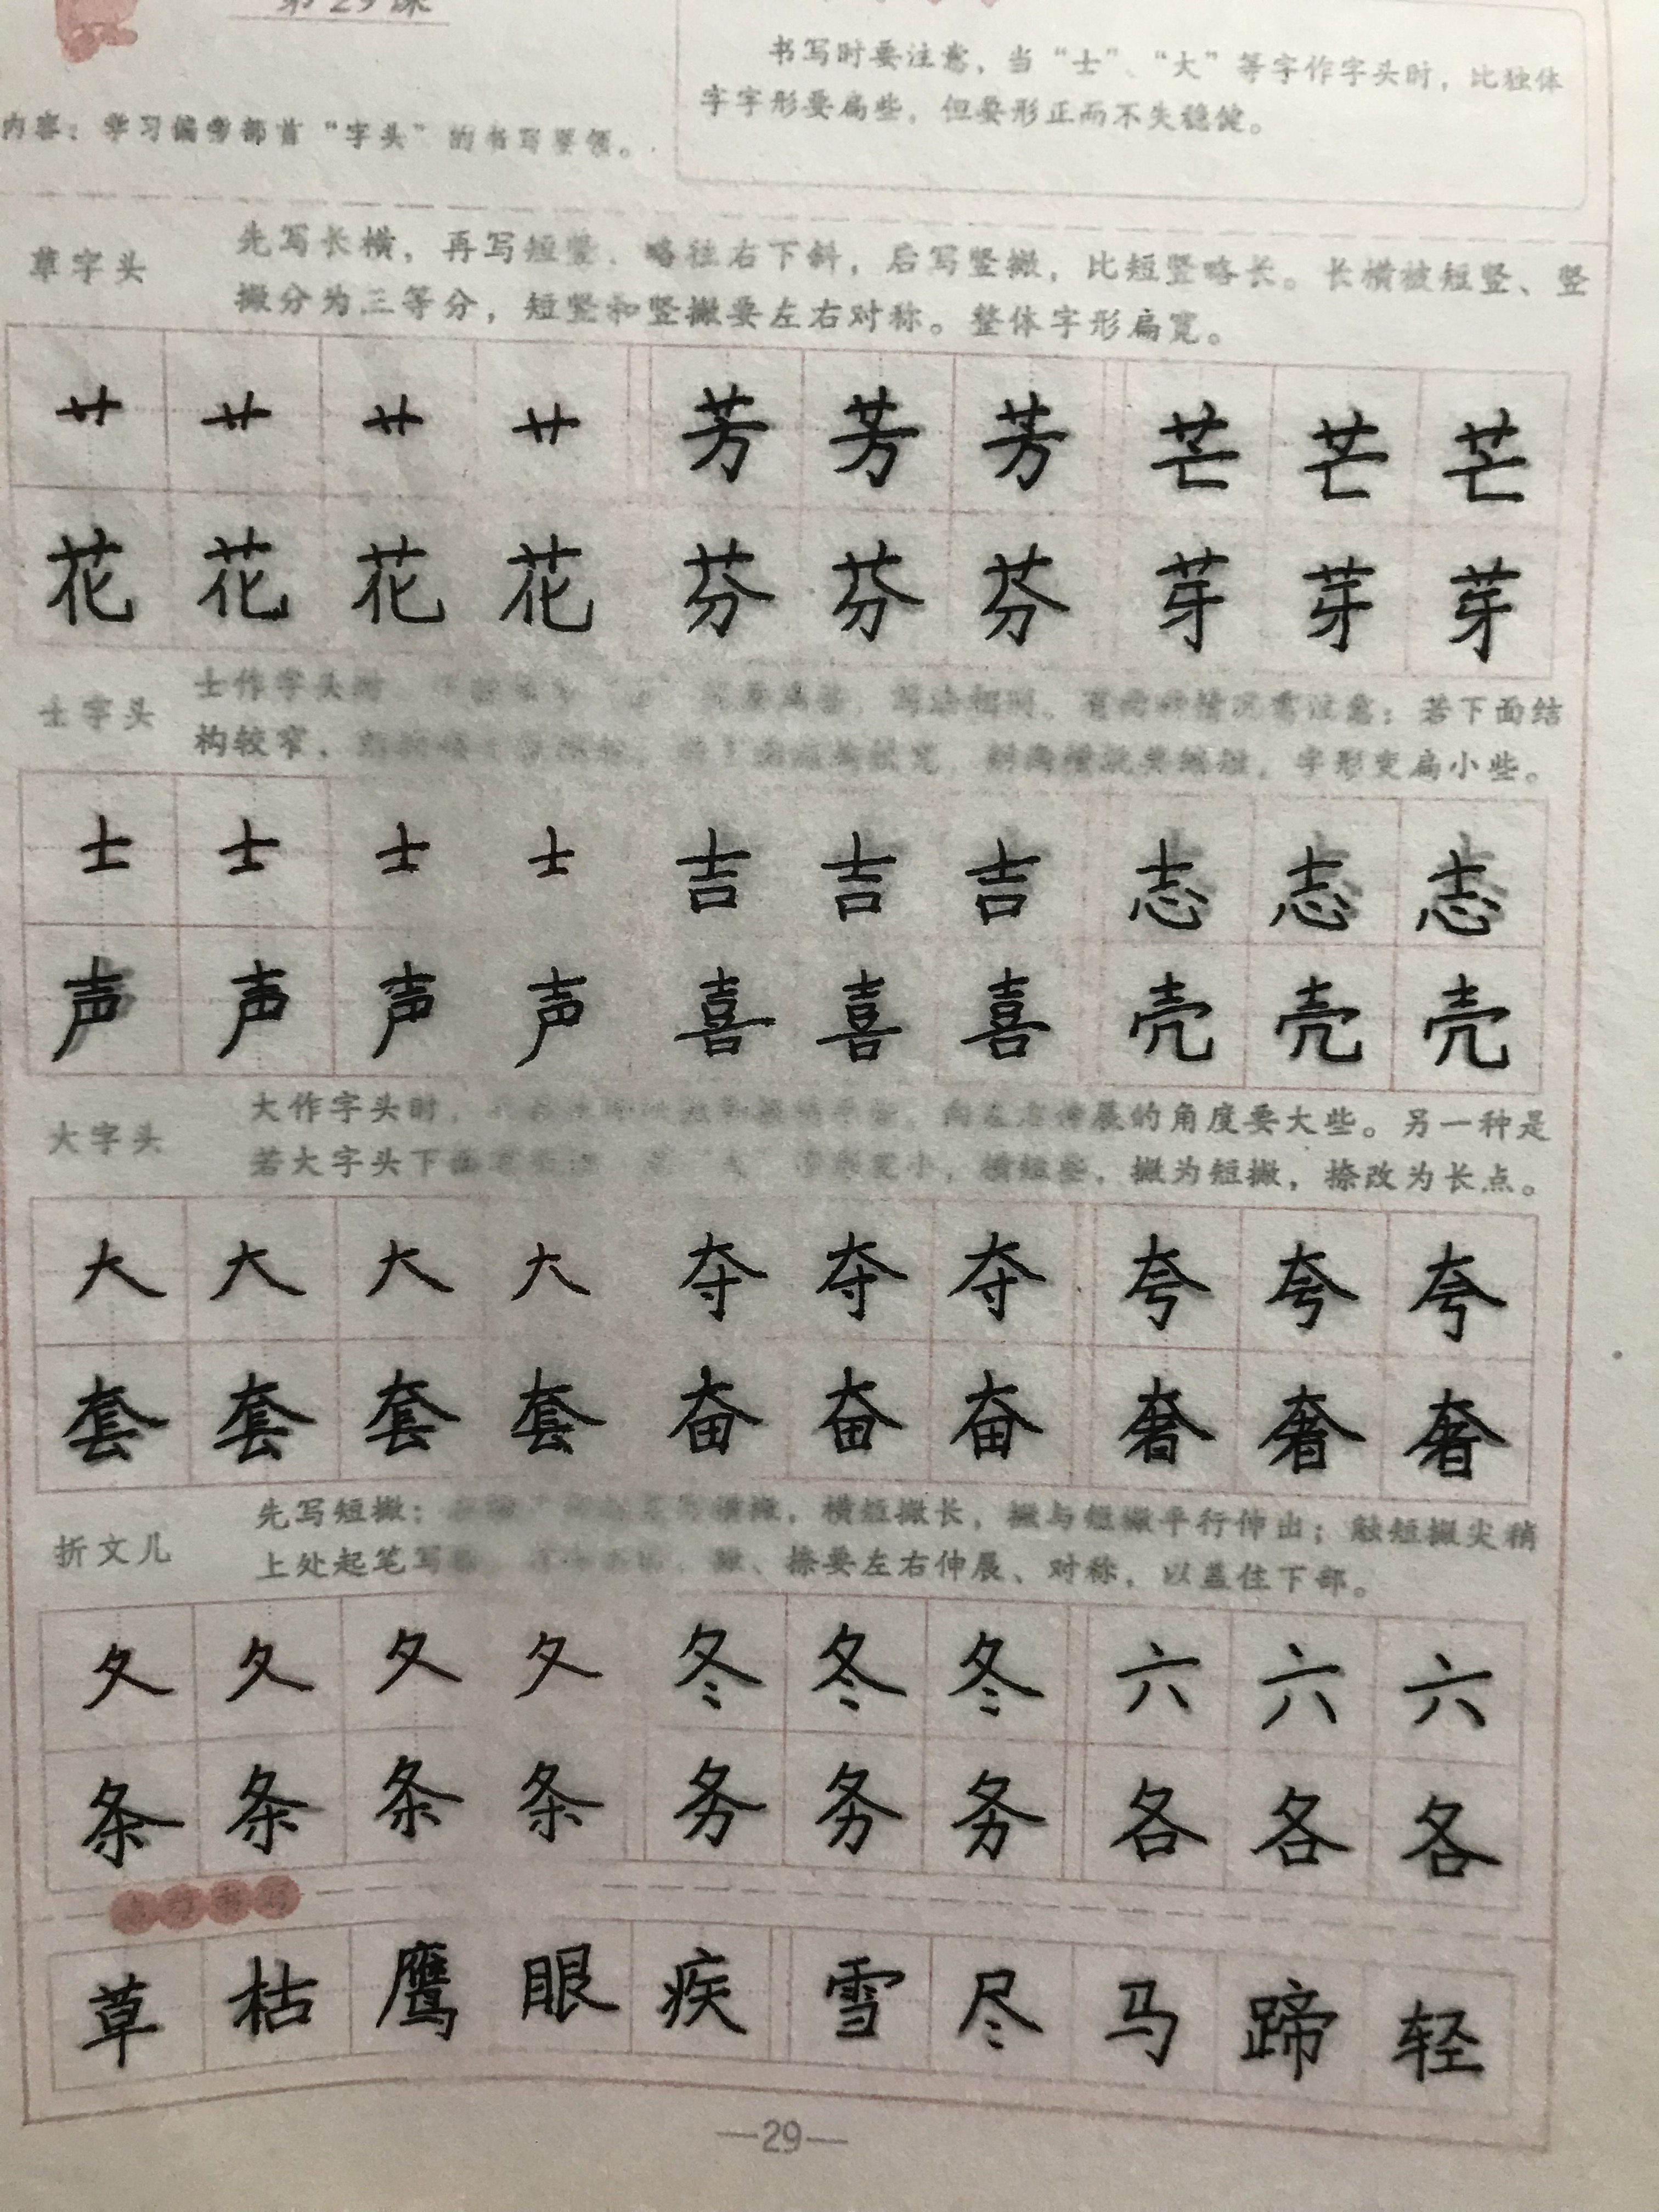 第29课
书写时要注意，当“士”、“大”等字作字头时，比独体
字字形要扁些，但要形正而不失稳健。
内容：学习偏旁部首“字头”的书写要领。
草字头
先写长横，再写短竖，略往右下斜，后写竖撇，比短竖略长。长横被短竖、竖
撇分为三等分，短竖和竖撇要左右对称。整体字形扁宽。
艹 艹 艹 艹 芳 芳 芳 芒 芒 芒
花 花 花 花 芬 芬 芬 芽 芽 芽
士字头
士作字头时 写法相同。有两种情况需注意：若下面结
构较窄， 则两横就要缩短，字形变扁小些。
士 士 士 士 吉 吉 吉 志 志 志
声 声 声 声 喜 喜 喜 壳 壳 壳
大字头
大作字头时， 向左右伸展的角度要大些。另一种是
若大字头下面 横短些，撇为短撇，捺改为长点。
大 大 大 大 夺 夺 夺 夸 夸 夸
套 套 套 套 奋 奋 奋 奢 奢 奢
折文儿
先写短撇； 横撇，横短撇长，撇与短撇平行伸出；触短撇尖稍
上处起笔写 撇、捺要左右伸展、对称，以盖住下部。
夂 夂 夂 夂 冬 冬 冬 六 六 六
条 条 条 条 务 务 务 各 各 各
草 枯 鹰 眼 疾 雪 尽 马 蹄 轻
—29—